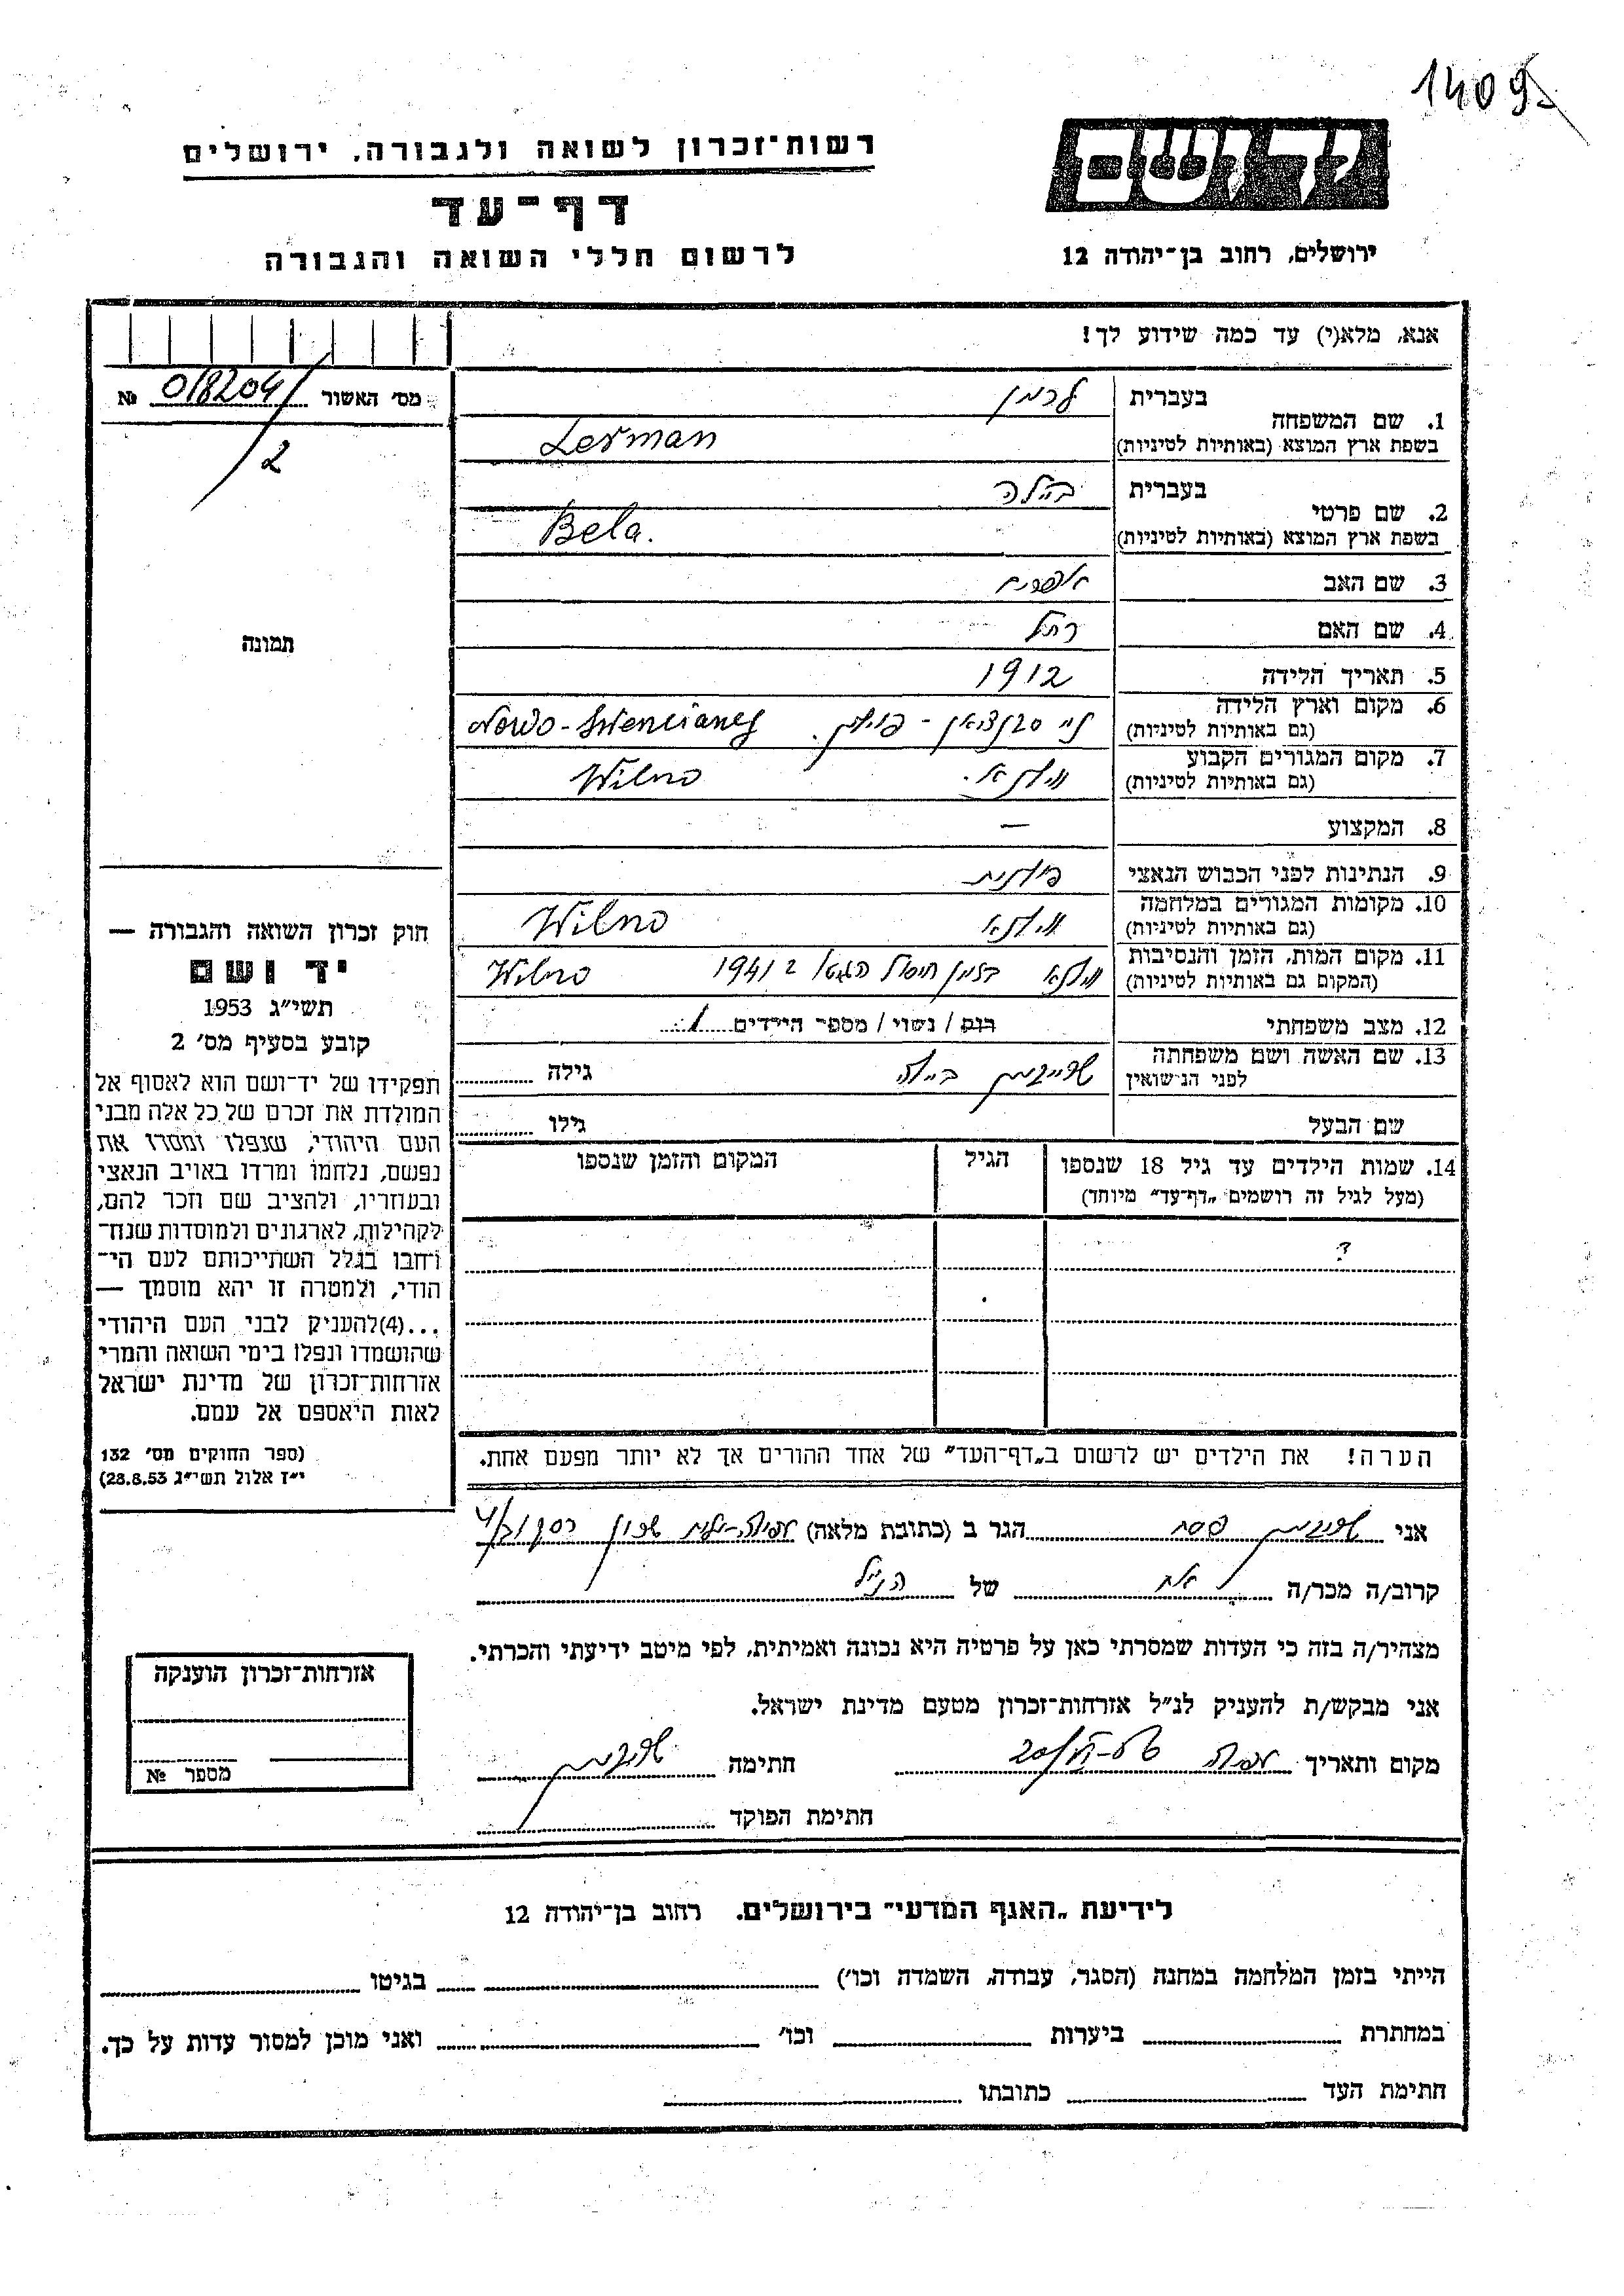 1409
רשות־זכרון לשואה ולגבורה, ירושלים
דף־עד
לרשום חללי השואה והגבורה
יד ושם
ירושלים, רחוב בן־יהודה 12
אנא, מלא(י) עד כמה שידוע לך!
מס׳ האשור 018204 №
2
תמונה
1. שם המשפחה
בעברית לרמן
בשפת ארץ המוצא (באותיות לטיניות) Lerman
2. שם פרטי
בעברית ביילה
בשפת ארץ המוצא (באותיות לטיניות) Bela.
3. שם האב אפרים
4. שם האם רחל
5. תאריך הלידה 1912
6. מקום וארץ הלידה
(גם באותיות לטיניות) - פולין. Nowo-Swenciany
7. מקום המגורים הקבוע
(גם באותיות לטיניות) ווילנא. Wilno
8. המקצוע —
9. הנתינות לפני הכבוש הנאצי פולנית
10. מקומות המגורים במלחמה
(גם באותיות לטיניות) ווילנא Wilno
11. מקום המות, הזמן והנסיבות
(המקום גם באותיות לטיניות) ווילנא בזמן חיסול הגטו 2 1941 Wilno
12. מצב משפחתי רווק / נשוי / מספר הילדים 1
13. שם האשה ושם משפחתה
לפני הנישואין ביילה גילה
שם הבעל גילו
14. שמות הילדים עד גיל 18 שנספו
(מעל לגיל זה רושמים „דף־עד״ מיוחד)
הגיל
המקום והזמן שנספו
?
הערה! את הילדים יש לרשום ב„דף־העד״ של אחד ההורים אך לא יותר מפעם אחת.
חוק זכרון השואה והגבורה —
יד ושם
תשי״ג 1953
קובע בסעיף מס׳ 2
תפקידו של יד־ושם הוא לאסוף אל
המולדת את זכרם של כל אלה מבני
העם היהודי, שנפלו ומסרו את
נפשם, נלחמו ומרדו באויב הנאצי
ובעוזריו, ולהציב שם וזכר להם,
לקהילות, לארגונים ולמוסדות שנח־
רחבו בגלל השתייכותם לעם הי־
הודי, ולמטרה זו יהא מוסמך —
...(4)להעניק לבני העם היהודי
שהושמדו ונפלו בימי השואה והמרי
אזרחות־זכרון של מדינת ישראל
לאות היאספם אל עמם.
(ספר החוקים מס׳ 132
י״ז אלול תשי״ג 28.8.53)
אני פסח הגר ב (כתובת מלאה)
קרוב/ה מכר/ה אח של הנ״ל
מצהיר/ה בזה כי העדות שמסרתי כאן על פרטיה היא נכונה ואמיתית, לפי מיטב ידיעתי והכרתי.
אני מבקש/ת להעניק לנ״ל אזרחות־זכרון מטעם מדינת ישראל.
מקום ותאריך חיפה חתימה
חתימת הפוקד
אזרחות־זכרון הוענקה
מספר №
לידיעת „האגף המדעי״ בירושלים, רחוב בן־יהודה 12
הייתי בזמן המלחמה במחנה (הסגר, עבודה, השמדה וכו׳) בגיטו
במחתרת ביערות וכו׳ ואני מוכן למסור עדות על כך.
חתימת העד כתובתו